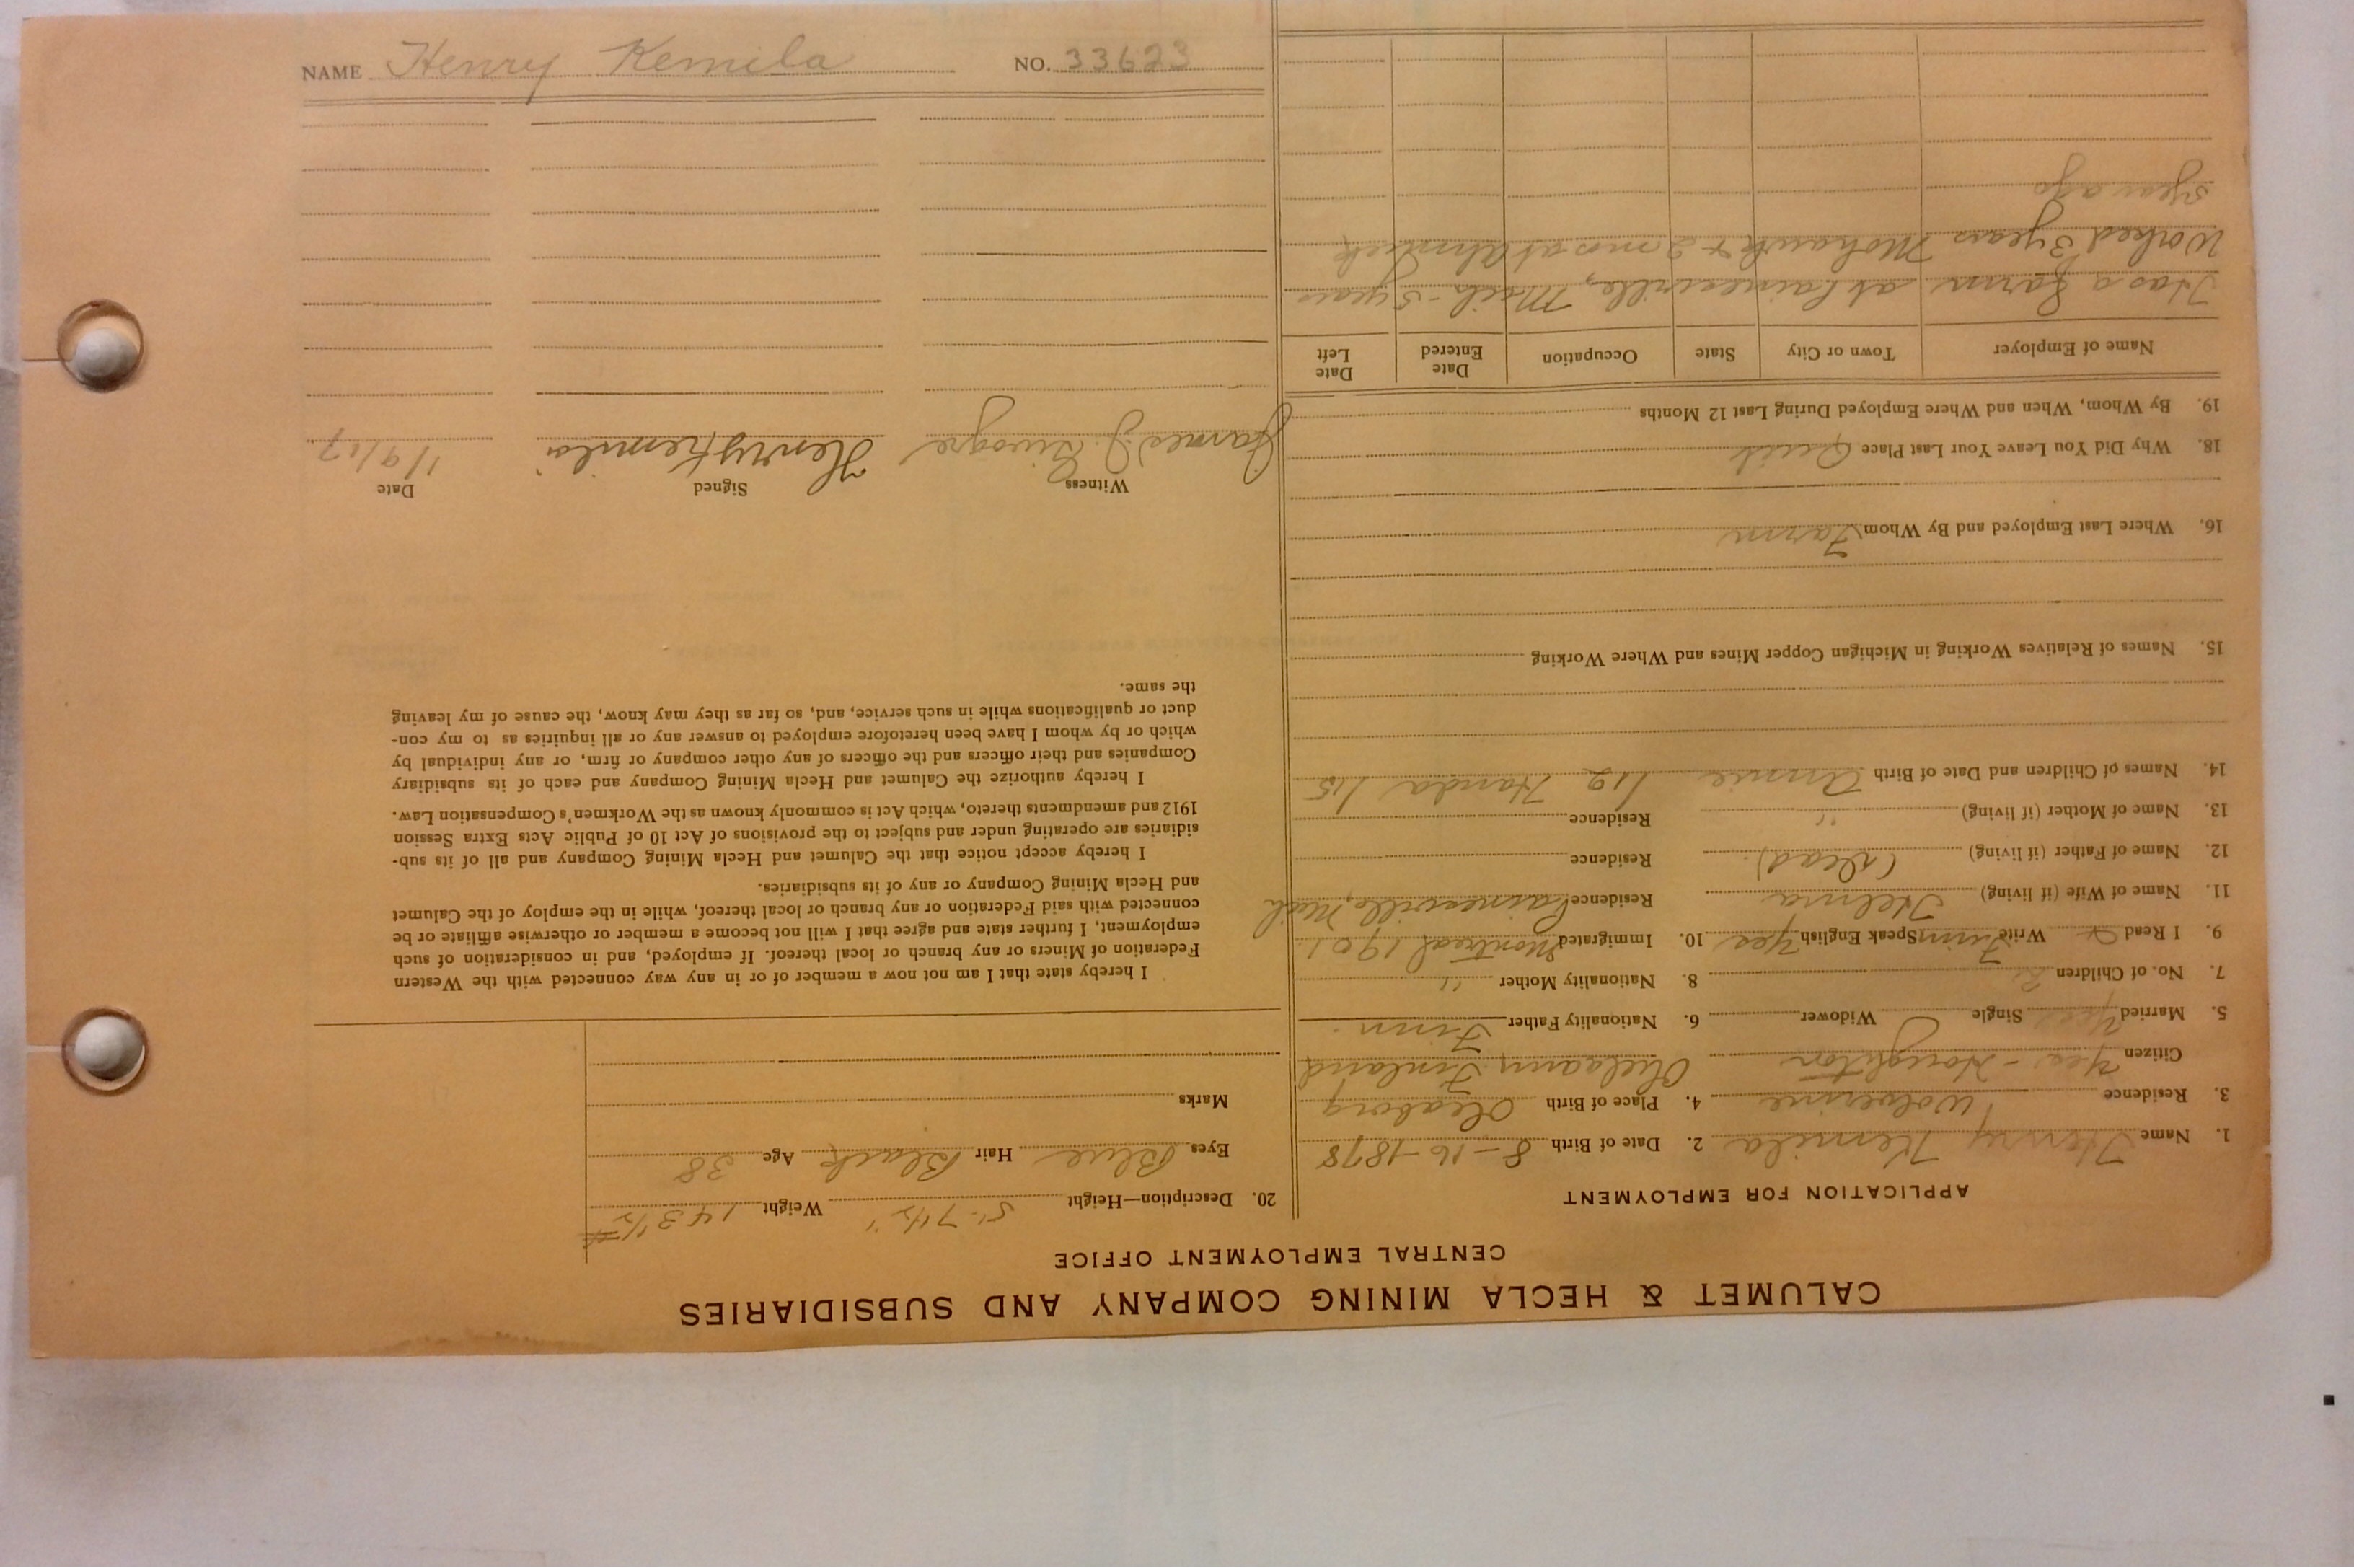 CALUMET & HECLA MINING COMPANY AND SUBSIDIARIES
CENTRAL EMPLOYMENT OFFICE
APPLICATION FOR EMPLOYMENT
1. Name Henry Kemila 2. Date of Birth 8-16-1878
3. Residence Wolverine 4. Place of Birth Oleaborg
Citizen Yes - Houghton Finland
5. Married Yes Single Widower 6. Nationality Father Finn
7. No. of Children 2 8. Nationality Mother "
9. I Read & Write Finn Speak English Yes 10. Immigrated Montreal 1901
11. Name of Wife (if living) Helma Residence Painesville, Mich
12. Name of Father (if living) (dead) Residence
13. Name of Mother (if living) " Residence
14. Names of Children and Date of Birth Annie 1/2 Handa 1/5
15. Names of Relatives Working in Michigan Copper Mines and Where Working
16. Where Last Employed and By Whom Farm
18. Why Did You Leave Your Last Place Quit
19. By Whom, When and Where Employed During Last 12 Months
Name of Employer Town or City State Occupation Date Entered Date Left
Has a farm at Painesville, Mich - 5 years
Worked 3 years Mohawk & 2 mos at Ahmeek
5 year ago
20. Description—Height 5'-7 1/2" Weight 143 1/2 #
Eyes Blue Hair Black Age 38
Marks
I hereby state that I am not now a member of or in any way connected with the Western
Federation of Miners or any branch or local thereof. If employed, and in consideration of such
employment, I further state and agree that I will not become a member or otherwise affiliate or be
connected with said Federation or any branch or local thereof, while in the employ of the Calumet
and Hecla Mining Company or any of its subsidiaries.
I hereby accept notice that the Calumet and Hecla Mining Company and all of its sub-
sidiaries are operating under and subject to the provisions of Act 10 of Public Acts Extra Session
1912 and amendments thereto, which Act is commonly known as the Workmen's Compensation Law.
I hereby authorize the Calumet and Hecla Mining Company and each of its subsidiary
Companies and their officers and the officers of any other company or firm, or any individual by
which or by whom I have been heretofore employed to answer any or all inquiries as to my con-
duct or qualifications while in such service, and, so far as they may know, the cause of my leaving
the same.
Witness Signed Date
James J. Henry Kemila 1/9/17
NAME Henry Kemila NO. 33623